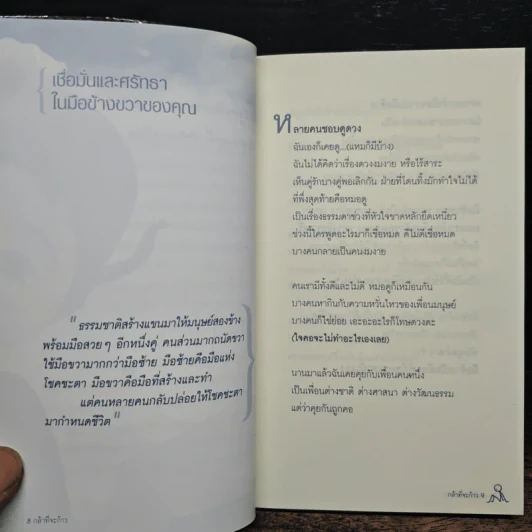 เชื่อมั่นและศรัทธา
ในมือข้างขวาของคุณ
" ธรรมชาติสร้างแขนมาให้มนุษย์สองข้าง
พร้อมมือสวย ๆ อีกหนึ่งคู่ คนส่วนมากถนัดขวา
ใช้มือขวามากกว่ามือซ้าย มือซ้ายคือมือแห่ง
โชคชะตา มือขวาคือมือที่สร้างและทำ
แต่คนหลายคนกลับปล่อยให้โชคชะตา
มากำหนดชีวิต "
8 กล้าที่จะก้าว
หลายคนชอบดูดวง
ฉันเองก็เคยดู...(แหมก็มีบ้าง)
ฉันไม่ได้คิดว่าเรื่องดวงงมงาย หรือไร้สาระ
เห็นคู่รักบางคู่พอเลิกกัน ฝ่ายที่โดนทิ้งมักทำใจไม่ได้
ที่พึ่งสุดท้ายคือหมอดู
เป็นเรื่องธรรมดาช่วงที่หัวใจขาดหลักยึดเหนี่ยว
ช่วงนี้ใครพูดอะไรมาก็เชื่อหมด ดีไม่ดีเชื่อหมด
บางคนกลายเป็นคนงมงาย
คนเรามีทั้งดีและไม่ดี หมอดูก็เหมือนกัน
บางคนหากินกับความหวั่นไหวของเพื่อนมนุษย์
บางคนก็ใช่ย่อย เอะอะอะไรก็โทษดวงคะ
(ใจคอจะไม่ทำอะไรเองเลย)
นานมาแล้วฉันเคยคุยกับเพื่อนคนหนึ่ง
เป็นเพื่อนต่างชาติ ต่างศาสนา ต่างวัฒนธรรม
แต่ว่าคุยกันถูกคอ
กล้าที่จะก้าว 9